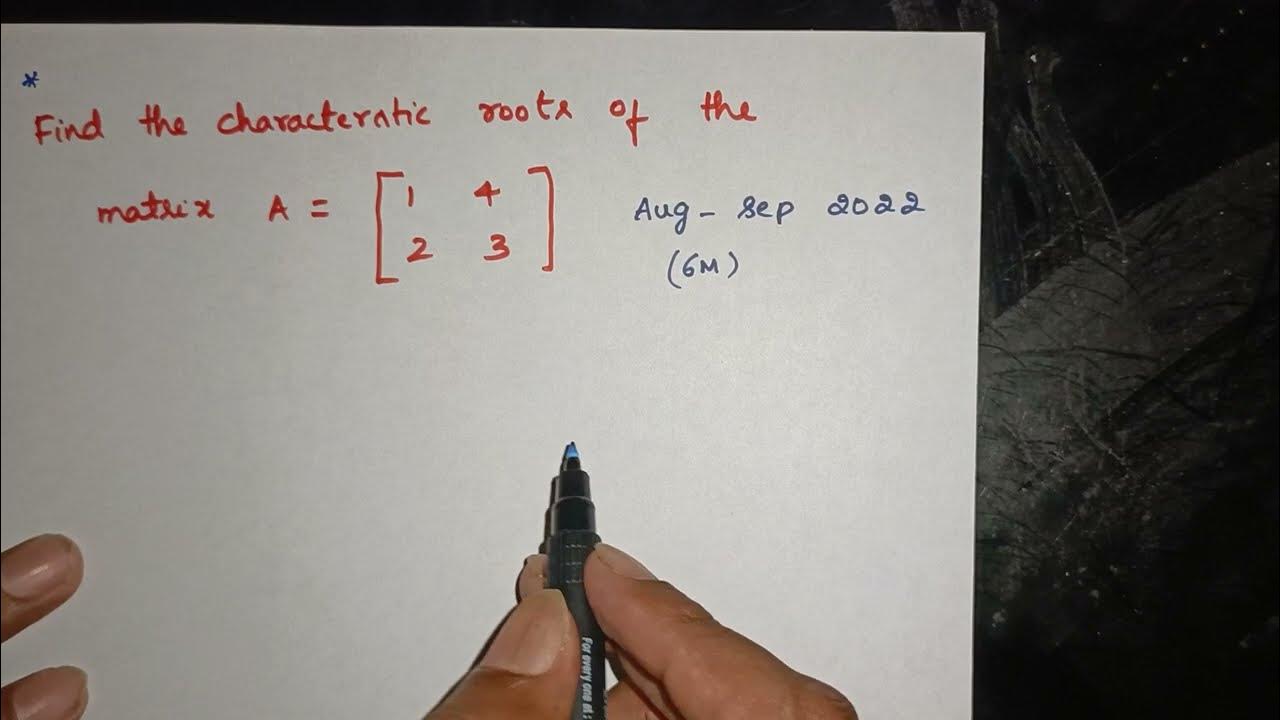 *
Find the characteristic roots of the
matrix A = [ 1 4
2 3 ]
Aug - Sep 2022
(6M)
For every one at